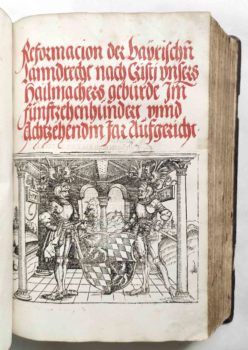 Reformacion der bayrischn
Lanndrecht nach Cristi vnsers
Hailmachers geburde Im
fünftzehenhundert vnnd
Achtzehendm Jar Aufgericht